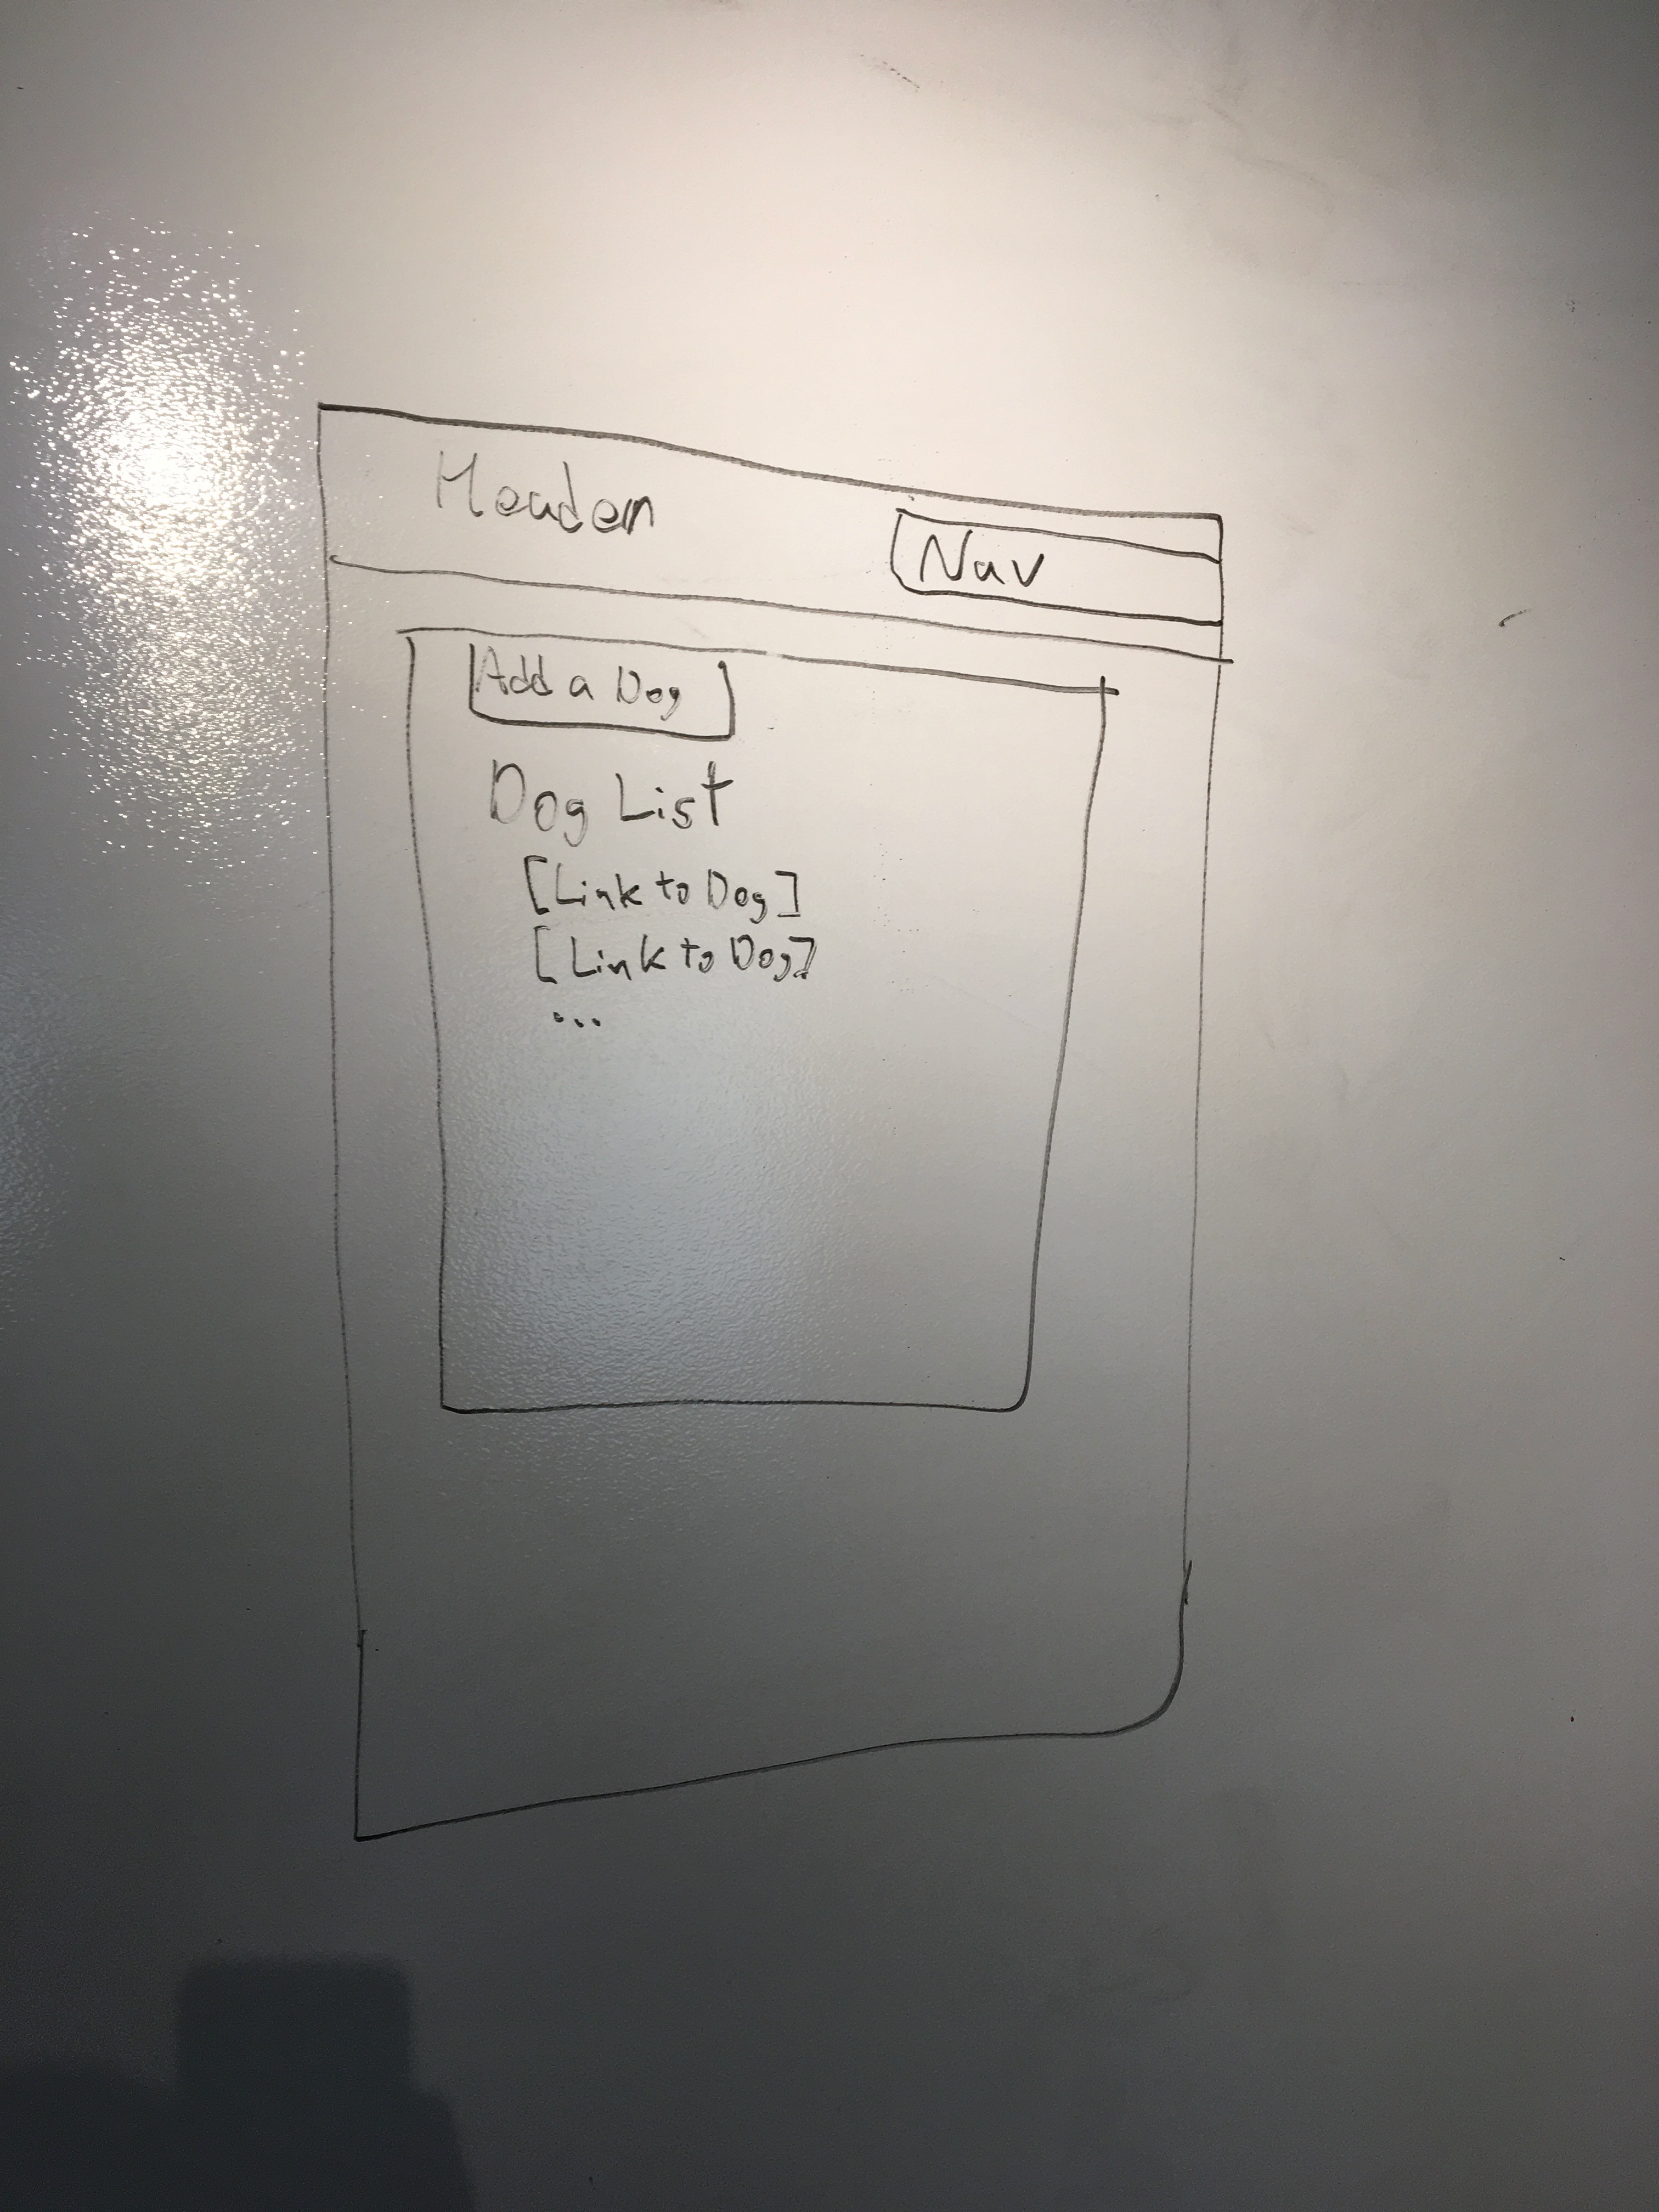 Header
Nav
Add a Dog
Dog List
[Link to Dog]
[Link to Dog]
...